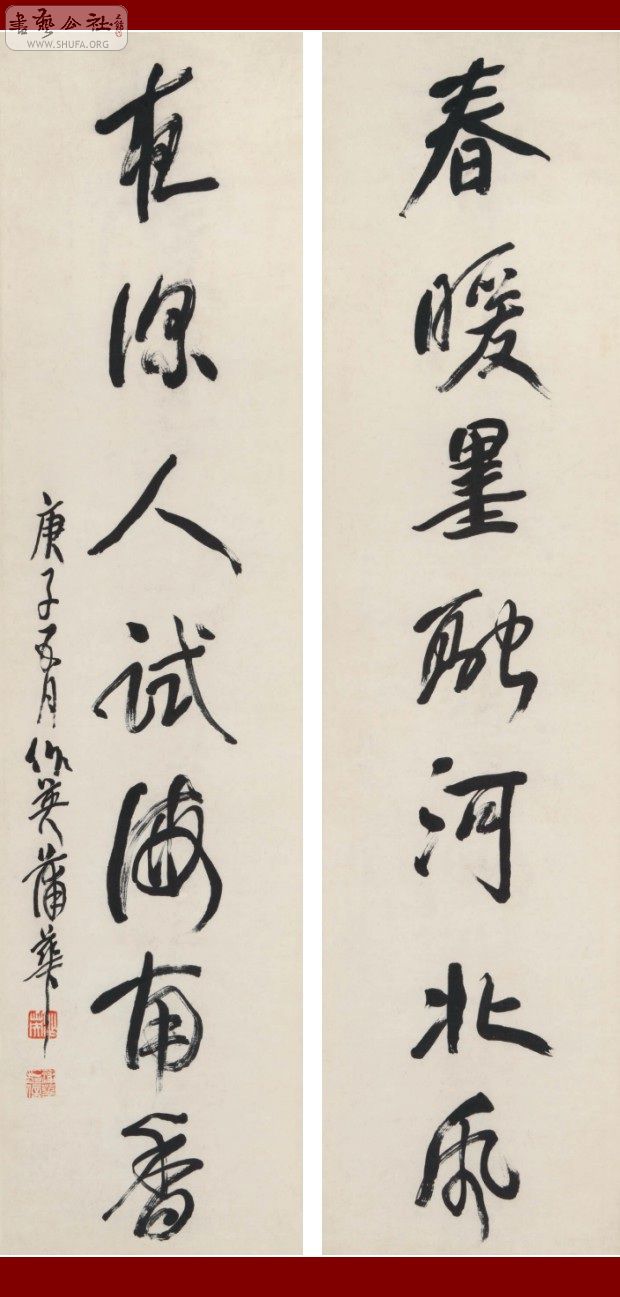 書藝公社
WWW.SHUFA.ORG
春暖墨融河北風
夜深人試海南香
庚子五月作英蒲華